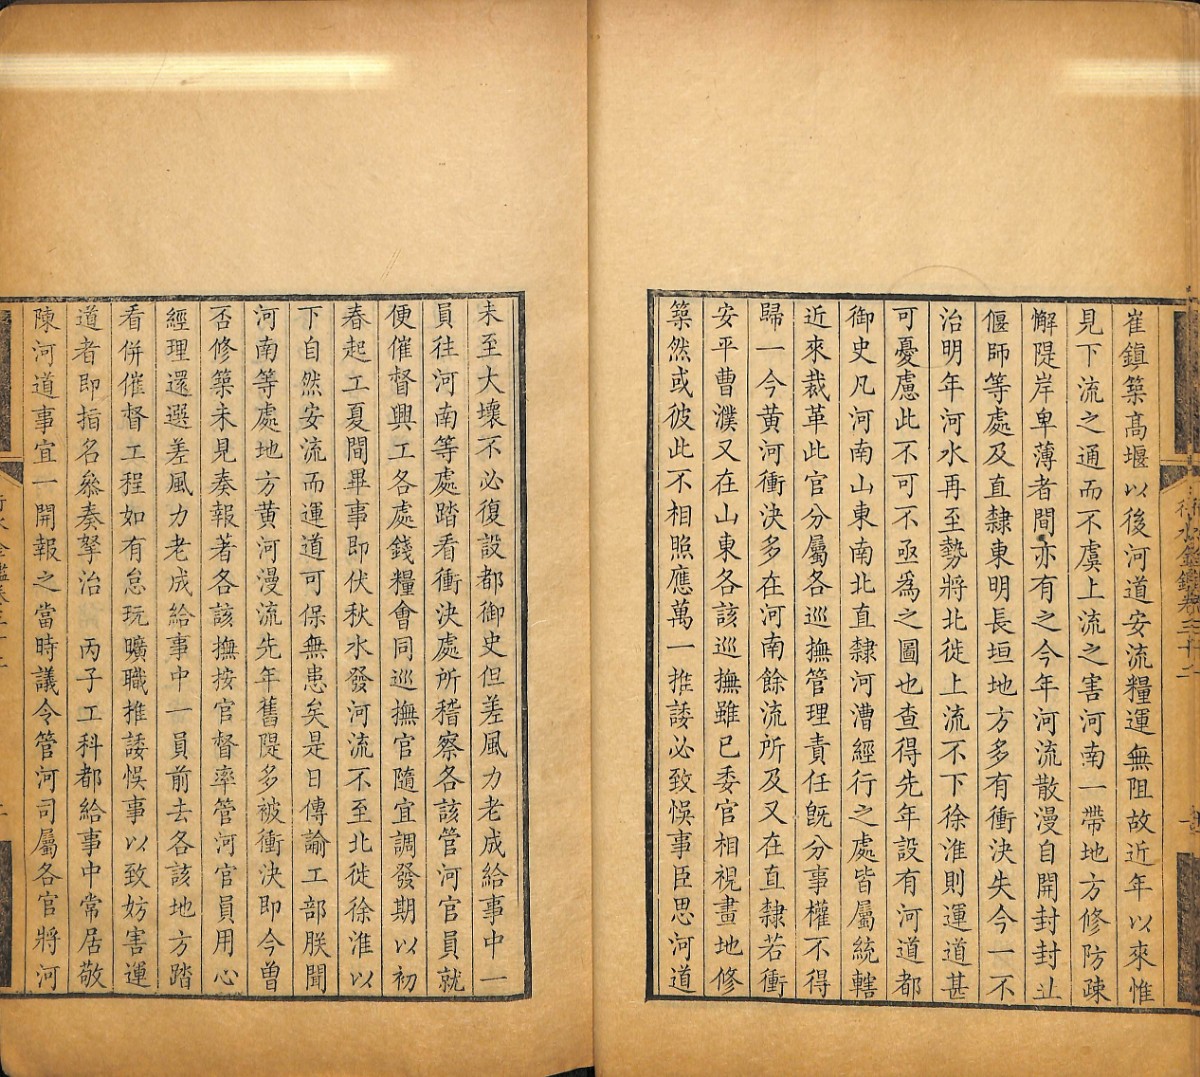 行水金鑑卷三十二
崔鎮築高堰以後河道安流糧運無阻故近年以來惟
見下流之通而不虞上流之害河南一帶地方修防疎
懈隄岸卑薄者間亦有之今年河流散漫自開封封丘
偃師等處及直隸東明長垣地方多有衝決失今一不
治明年河水再至勢將北徙上流不下徐淮則運道甚
可憂慮此不可不亟爲之圖也查得先年設有河道都
御史凡河南山東南北直隸河漕經行之處皆屬統轄
近來裁革此官分屬各巡撫管理責任旣分事權不得
歸一今黃河衝決多在河南餘流所及又在直隸若衝
安平曹濮又在山東各該巡撫雖已委官相視畫地修
築然或彼此不相照應萬一推諉必致悞事臣思河道
未至大壞不必復設都御史但差風力老成給事中一
員往河南等處踏看衝決處所稽察各該管河官員就
便催督興工各處錢糧會同巡撫官隨宜調發期以初
春起工夏間畢事卽伏秋水發河流不至北徙徐淮以
下自然安流而運道可保無患矣是日傳諭工部朕聞
河南等處地方黃河漫流先年舊隄多被衝決卽今曾
否修築未見奏報著各該撫按官督率管河官員用心
經理還選差風力老成給事中一員前去各該地方踏
看併催督工程如有怠玩曠職推諉悞事以致妨害運
道者卽指名叅奏拏治 丙子工科都給事中常居敬
陳河道事宜一開報之當時議令管河司屬各官將河